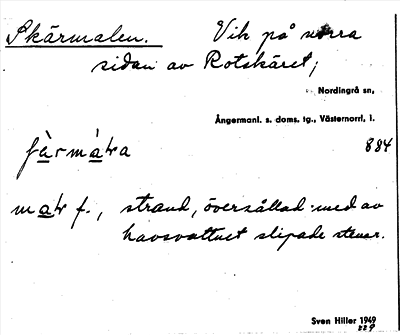 Skärmalen. Vik på norra
sidan av Rotskäret;
Nordingrå sn,
Ångermanl. s. doms. tg., Västernorrl, l.
884
mak f., strand, översållad med av
havsvattnet slipade stenar.
Sven Hiller 1949
229